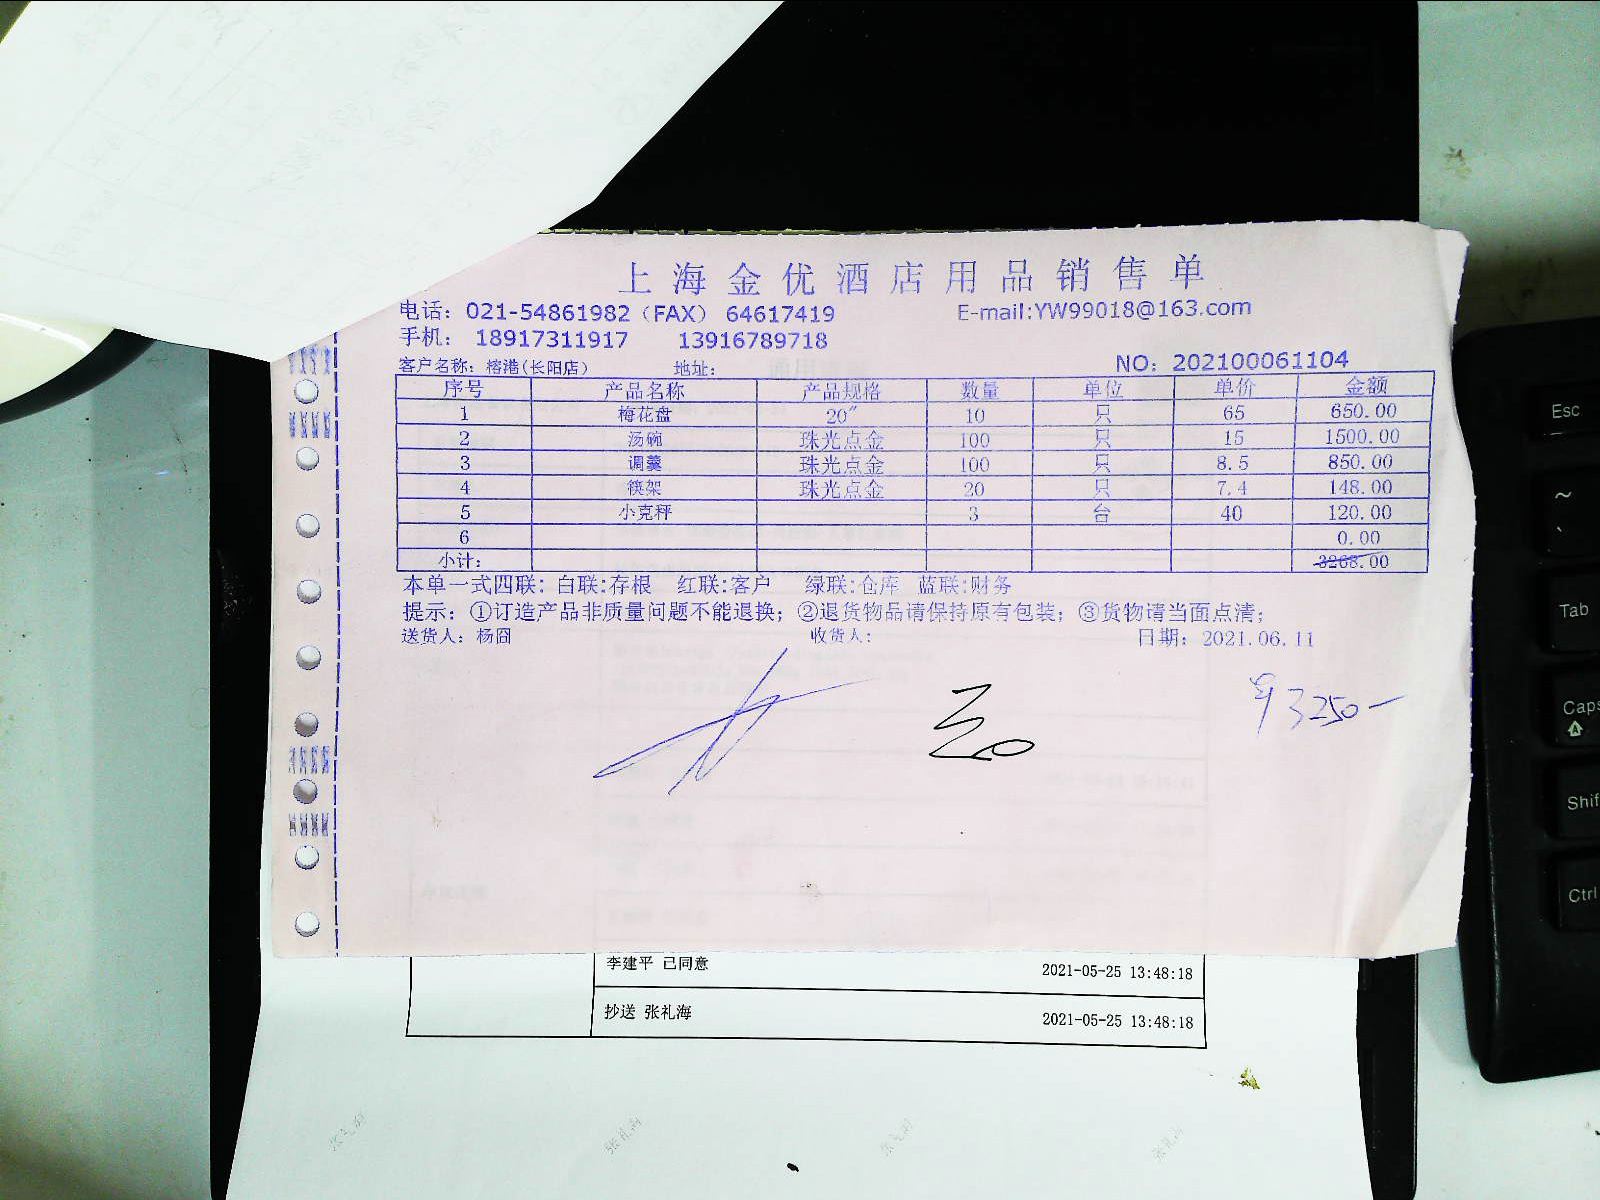 上海金优酒店用品销售单
电话：021-54861982（FAX）64617419 E-mail:YW99018@163.com
手机： 18917311917 13916789718
客户名称：榕港(长阳店) 地址： NO：202100061104
序号 产品名称 产品规格 数量 单位 单价 金额
1 梅花盘 20″ 10 只 65 650.00
2 汤碗 珠光点金 100 只 15 1500.00
3 调羹 珠光点金 100 只 8.5 850.00
4 筷架 珠光点金 20 只 7.4 148.00
5 小克秤 3 台 40 120.00
6 0.00
小计： 3268.00
本单一式四联：白联:存根 红联:客户 绿联:仓库 蓝联:财务
提示：①订造产品非质量问题不能退换；②退货物品请保持原有包装；③货物请当面点清；
送货人：杨囧 收货人： 日期：2021.06.11
¥3250-
李建平 已同意 2021-05-25 13:48:18
抄送 张礼海 2021-05-25 13:48:18
Esc
~
`
Tab
Caps
Shif
Ctrl